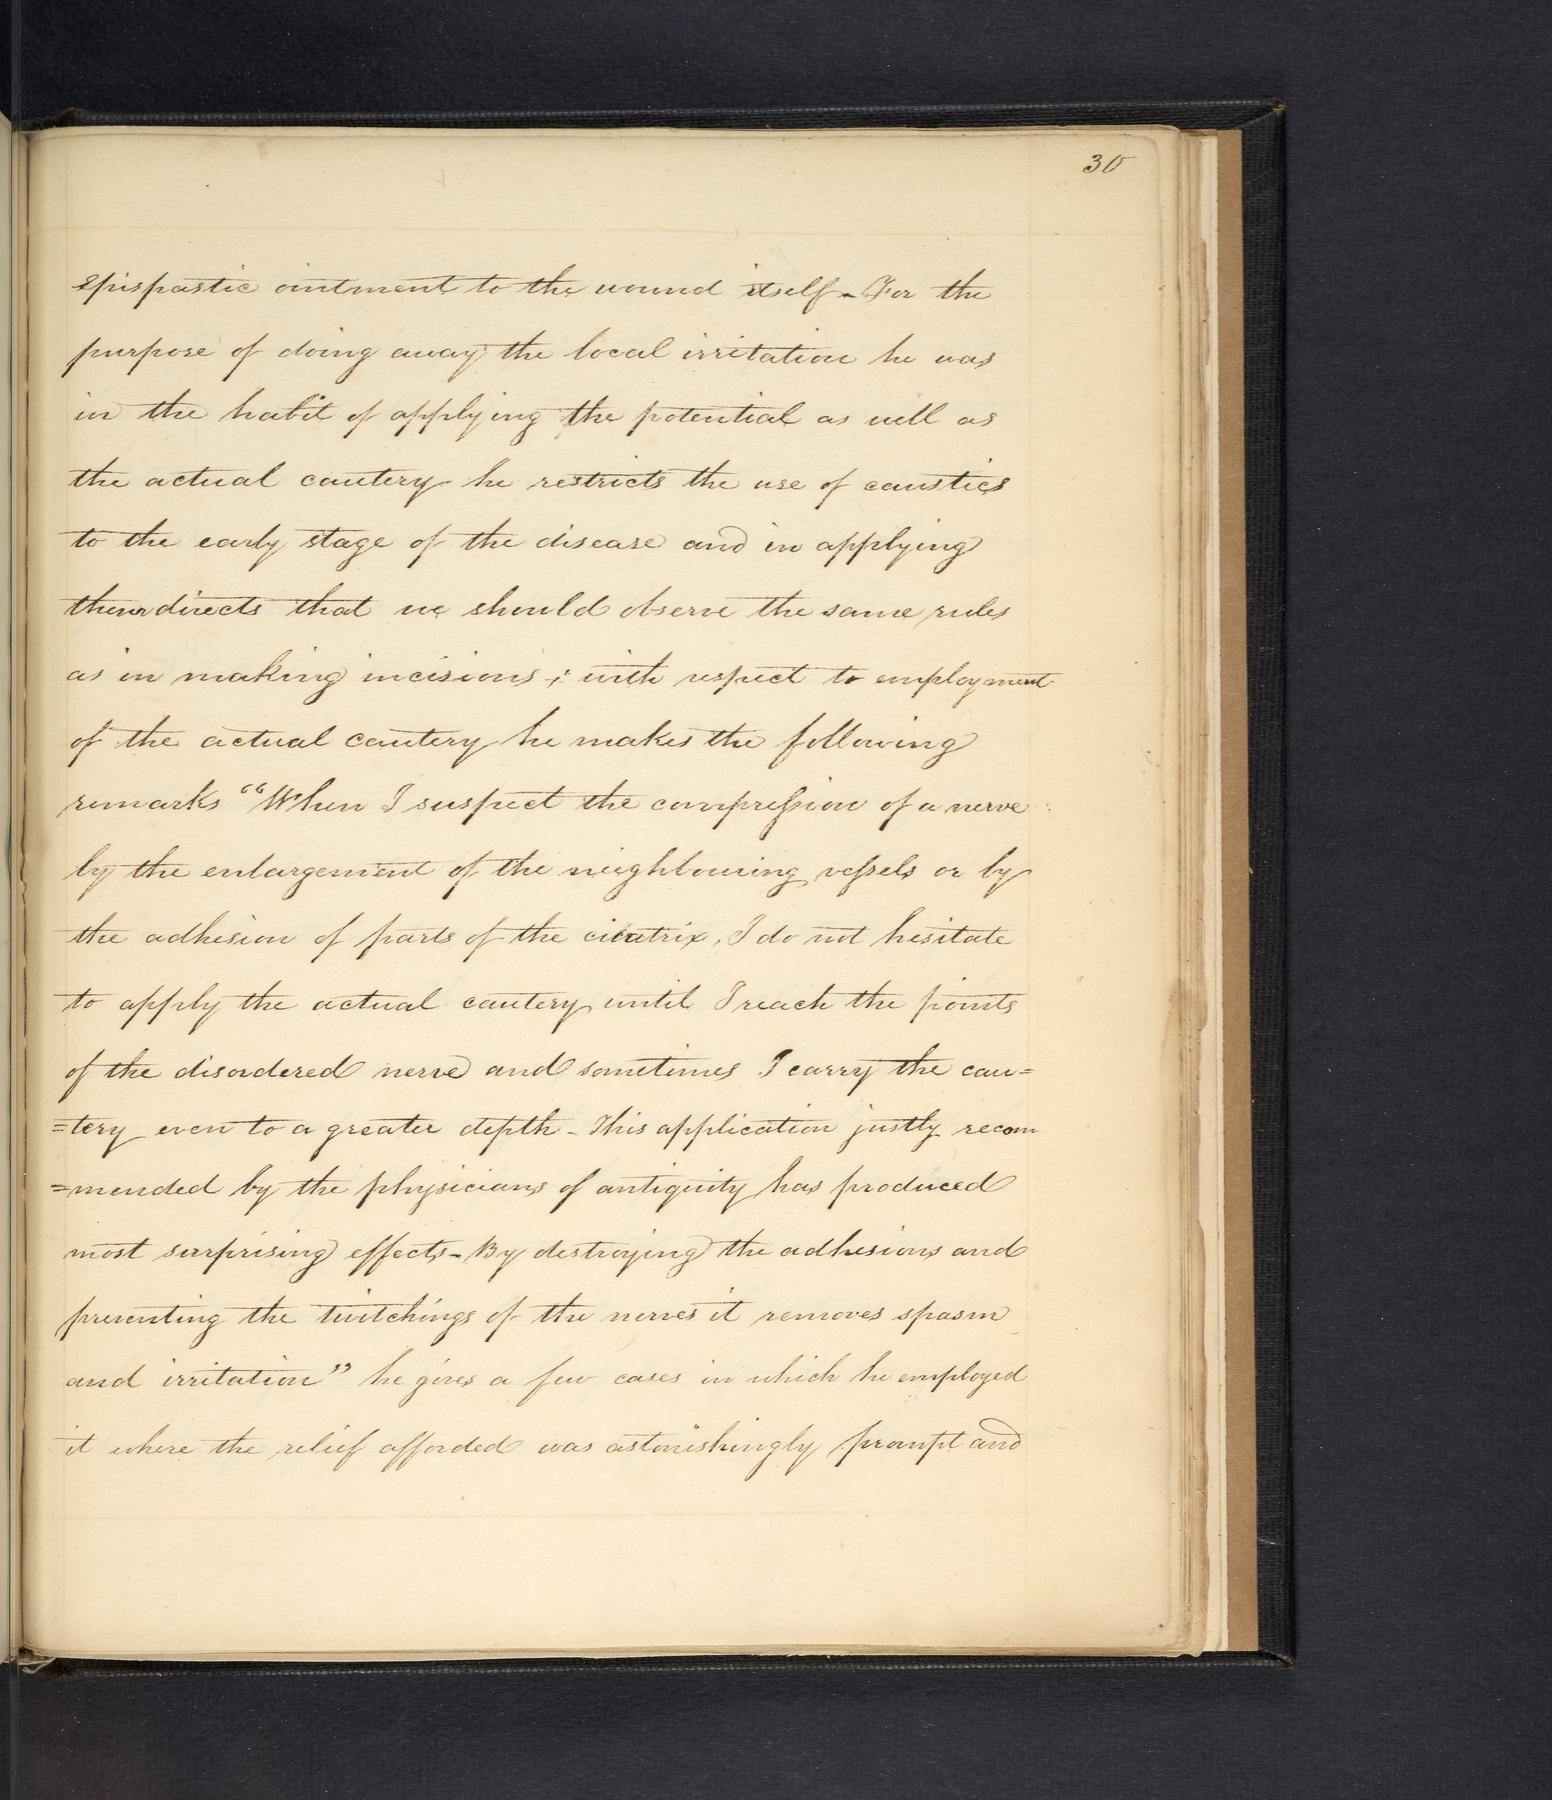 30
Epispastic ointment to the wound itself - For the
purpose of doing away the local irritation he was
in the habit of applying the potential as well as
the actual cautery he restricts the use of caustics
to the early stage of the disease and in applying
them directs that we should observe the same rules
as in making incisions; with respect to employment
of the actual cautery he makes the following
remarks "When I suspect the compression of a nerve
by the enlargement of the neighbouring vessels or by
the adhesion of parts of the cicatrix, I do not hesitate
to apply the actual cautery until I reach the points
of the disordered nerve and sometimes I carry the cau=
=tery even to a greater depth - This application justly recom
=mended by the physicians of antiquity has produced
most surprising effects - By destroying the adhesions and
preventing the twitchings of the nerves it removes spasm
and irritation" he gives a few cases in which he employed
it where the relief afforded was astonishingly prompt and